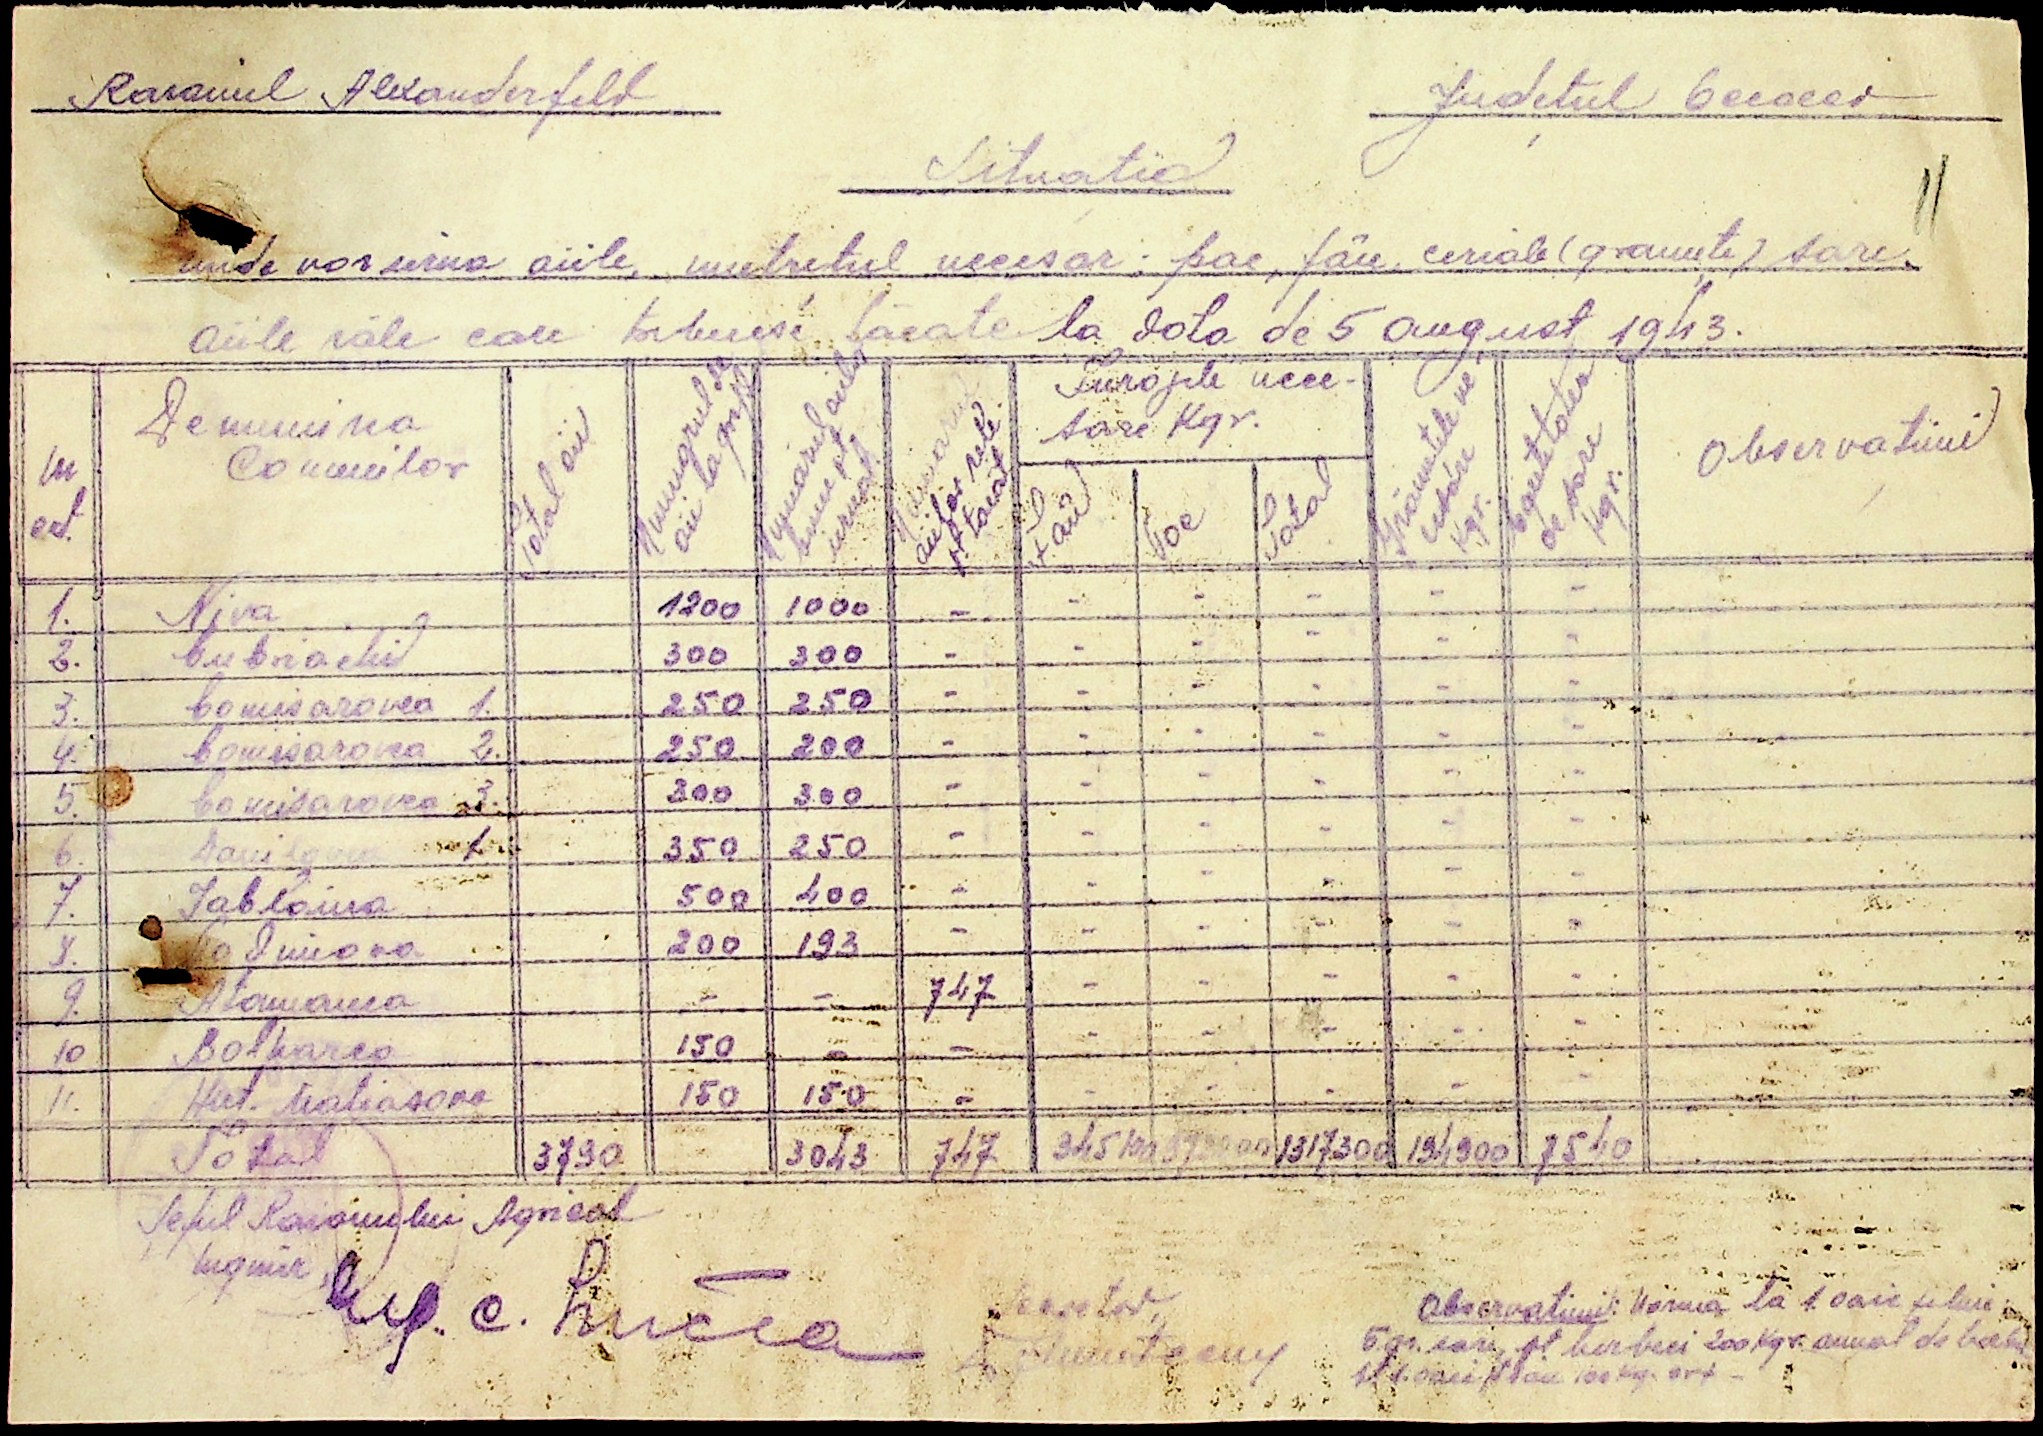 Raionul Alexanderfeld
Judetul
Situatia
11
unde vor ierna oiile, nutretul necesar: pae, fân, ceriale (graunțe) sare.
oiile răle care trebuesc tăeate la data de 5 August 1943.
Nr crt. Denumirea Comunilor Total oii Numărul de oii la Numărul oiilor bune pt iernat Numarul oiilor rele pt. taiat Furajele nece-sare Kgr. Fân Pae Total Grăunțele ne cesare Kgr. Cantitatea de sare Kgr. Observatiuni
1. Niva 1200 1000 - - - - - -
2. Cubriachi 300 300 - - - - - -
3. Comisarovca 1. 250 250 - - - - - -
4. Comisarovca 2. 250 200 - - - - - -
5. Comisarovca 3. 300 300 - - - - - -
6. Danilovca 1. 350 250 - - - - - -
7. Iabloinca 500 400 - - - - - -
8. 200 193 - - - - - -
9. Atamanca - - 747 - - - - -
10 Bolharca 150 - - - - - - -
11. Hut. Matiasova 150 150 - - - - - -
Total 3790 3043 747 1317300 194900 7540
Șeful Raionului Agricol
Inginer
Ing. C.
Observatiuni: Norma la 1. oaie
5 gr. sare, pt berbeci 200 Kgr. anual de
100 Kg.